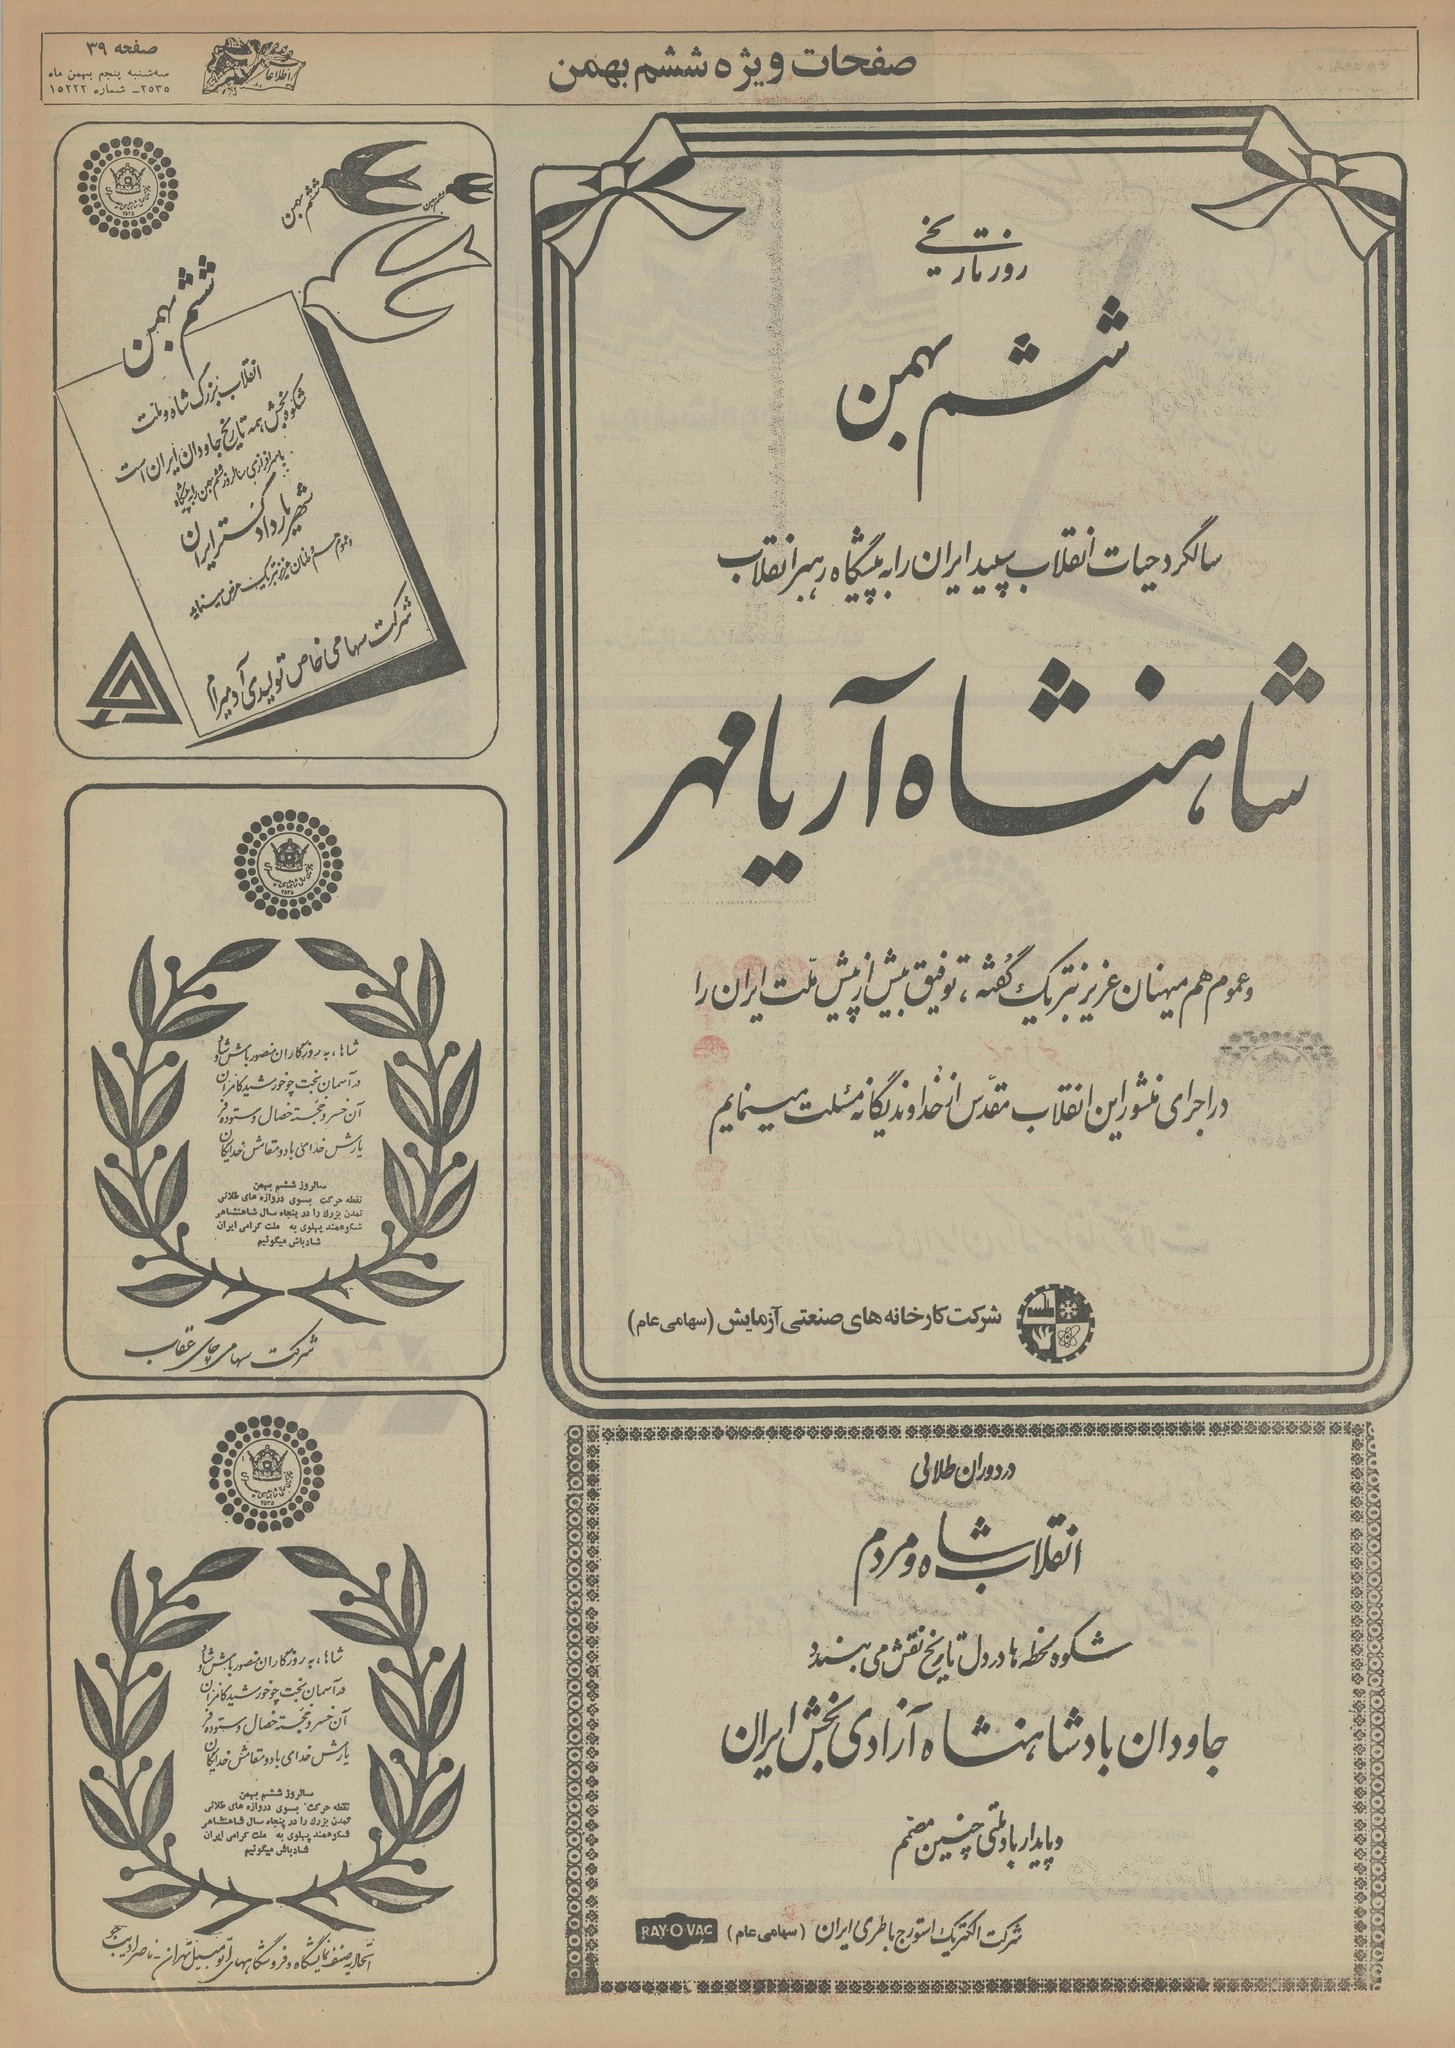 صفحات ویژه ششم بهمن
صفحه ۳۹
سه‌شنبه پنجم بهمن ماه
۲۵۳۵ - شماره ۱۵۲۲۲
اطلاعات
روز تاریخی
ششم بهمن
سالگرد حیات انقلاب سپید ایران را به پیشگاه رهبر انقلاب
شاهنشاه آریامهر
و عموم هم میهنان عزیز تبریک گفته، توفیق بیش از پیش ملّت ایران را
در اجرای منشور این انقلاب مقدّس از خداوند یگانه مسئلت مینمایم
شرکت کارخانه های صنعتی آزمایش (سهامی عام)
در دوران طلائی
انقلاب شاه و مردم
شکوه لحظه ها در دل تاریخ نقش می بندد
جاودان باد شاهنشاه آزادی بخش ایران
و پایدار باد ملتی چنین مصمم
شرکت الکتریک استورج باطری ایران (سهامی عام)
RAY-O-VAC
ششم بهمن
ششم بهمن
ششم بهمن
انقلاب بزرگ شاه و ملت
شکوه بخش همه تاریخ جاودان ایران است
با سرافرازی سالروز ششم بهمن را به پیشگاه
شهریار دادگستر ایران
و عموم هم وطنان عزیز تبریک عرض مینماید
شرکت سهامی خاص تولیدی آدمیرام
۲۵۳۵
شاها، به روزگاران منصور باش و شاد
در آسمان بخت چو خورشید کامران
آن خسرو خجسته خصال و ستوده فر
یارش خدای باد و متقاش خدایگان
سالروز ششم بهمن
نقطه حرکت بسوی دروازه های طلائی
تمدن بزرگ را در پنجاه سال شاهنشاهی
شکوهمند پهلوی به ملت گرامی ایران
شادباش میگوئیم
شرکت سهامی چای عقاب
۲۵۳۵
شاها، به روزگاران منصور باش و شاد
در آسمان بخت چو خورشید کامران
آن خسرو خجسته خصال و ستوده فر
یارش خدای باد و متقاش خدایگان
سالروز ششم بهمن
نقطه حرکت بسوی دروازه های طلائی
تمدن بزرگ را در پنجاه سال شاهنشاهی
شکوهمند پهلوی به ملت گرامی ایران
شادباش میگوئیم
اتحادیه صنف نمایشگاه و فروشگاههای اتومبیل تهران - ناصر ادیب